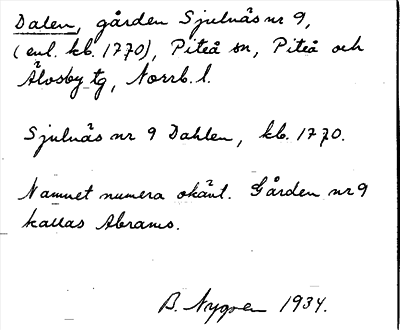 Dalen, gården Sjulnäs nr 9,
(enl. kb. 1770), Piteå sn, Piteå och
Älvsby tg, Norrb. l.
Sjulnäs nr 9 Dahlen, kb. 1770.
Namnet numera okänt. Gården nr 9
kallas Abrams.
B. Nygren 1934.